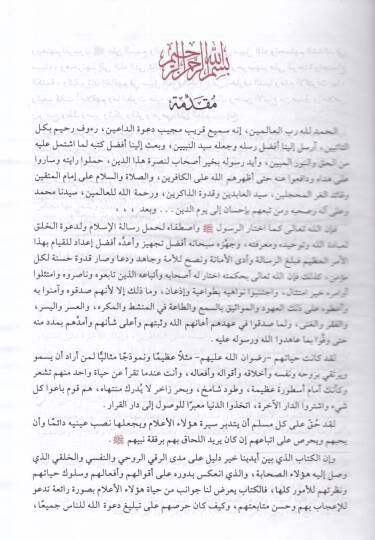 بسم الله الرحمن الرحيم
مُقَدِّمَة
الحمد لله رب العالمين، إنه سميع قريب مجيب دعوة الداعين، رءوف رحيم بكل
التائبين، أرسل إلينا أفضل رسله وجعله سيد النبيين، وبعث إلينا أفضل كتبه لما اشتمل عليه
من الحق والنور المبين، وأيد رسوله بخير أصحاب لنصرة هذا الدين، حملوا رايته وساروا
على هداه ودافعوا عنه حتى أظهرهم الله على الكافرين، والصلاة والسلام على إمام المتقين
وقائد الغر المحجلين، سيد العابدين وقدوة الذاكرين، ورحمة الله للعالمين، سيدنا محمد
وعلى آله وصحبه ومن تبعهم بإحسان إلى يوم الدين... وبعد ،،،
فإن الله تعالى كما اختار الرسول ﷺ واصطفاه لحمل رسالة الإسلام ولدعوة الخلق
لعبادة الله وتوحيده، ومعرفته، وجهزه سبحانه أفضل تجهيز وأعدَّه أفضل إعداد للقيام بهذا
الأمر العظيم فبلغ الرسالة وأدى الأمانة ونصح للأمة وجاهد ودعا وصار قدوة حسنة لكل
مؤمن، كذلك فإن الله تعالى بحكمته اختار له أصحابه وأتباعه الذين تابعوه وناصروه وامتثلوا
أوامره خير امتثال، واجتنبوا نواهيه بطواعية وإذعان، وما ذلك إلا لأنهم صدقوه وآمنوا به
وأعطوه على ذلك العهود والمواثيق بالسمع والطاعة في المنشط والمكره، والعسر واليسر،
والفقر والغنى، ولما صدقوا في عهدهم أعانهم الله وثبتهم وأعلى شأنهم وأمدَّهم بمدد منه
حتى وفَّوا بما عاهدوا الله ورسوله عليه.
لقد كانت حياتهم -رضوان الله عليهم- مثلًا عظيمًا ونموذجًا مثاليًّا لمن أراد أن يسمو
ويرتقي بروحه ونفسه وأخلاقه وأقواله وأفعاله، وأنت عندما تقرأ عن حياة واحد منهم تشعر
وكأنك أمام أسطورة عظيمة، وطود شامخ، وبحر زاخر لا يُدرك منتهاه، هم قوم باعوا كل
شيء واشتروا الدار الآخرة، اتخذوا الدنيا معبرًا للوصول إلى دار القرار.
لقد حُقَّ على كل مسلم أن يتدبر سيرة هؤلاء الأعلام ويجعلها نصب عينيه دائمًا وأن
يحبهم ويحرص على اتباعهم إن كان يريد اللحاق بهم برفقة نبيهم ﷺ.
وإن الكتاب الذي بين أيدينا خير دليل على مدى الرقي الروحي والنفسي والخلقي الذي
وصل إليه هؤلاء الصحابة، والذي انعكس بدوره على أقوالهم وأفعالهم وسلوك حياتهم
ونظرتهم للأمور كلها، فالكتاب يعرض لنا جوانب من حياة هؤلاء الأعلام بصورة رائعة تدعو
للإعجاب بهم وحسن متابعتهم، وكيف كان حرصهم على تبليغ دعوة الله للناس جميعًا،